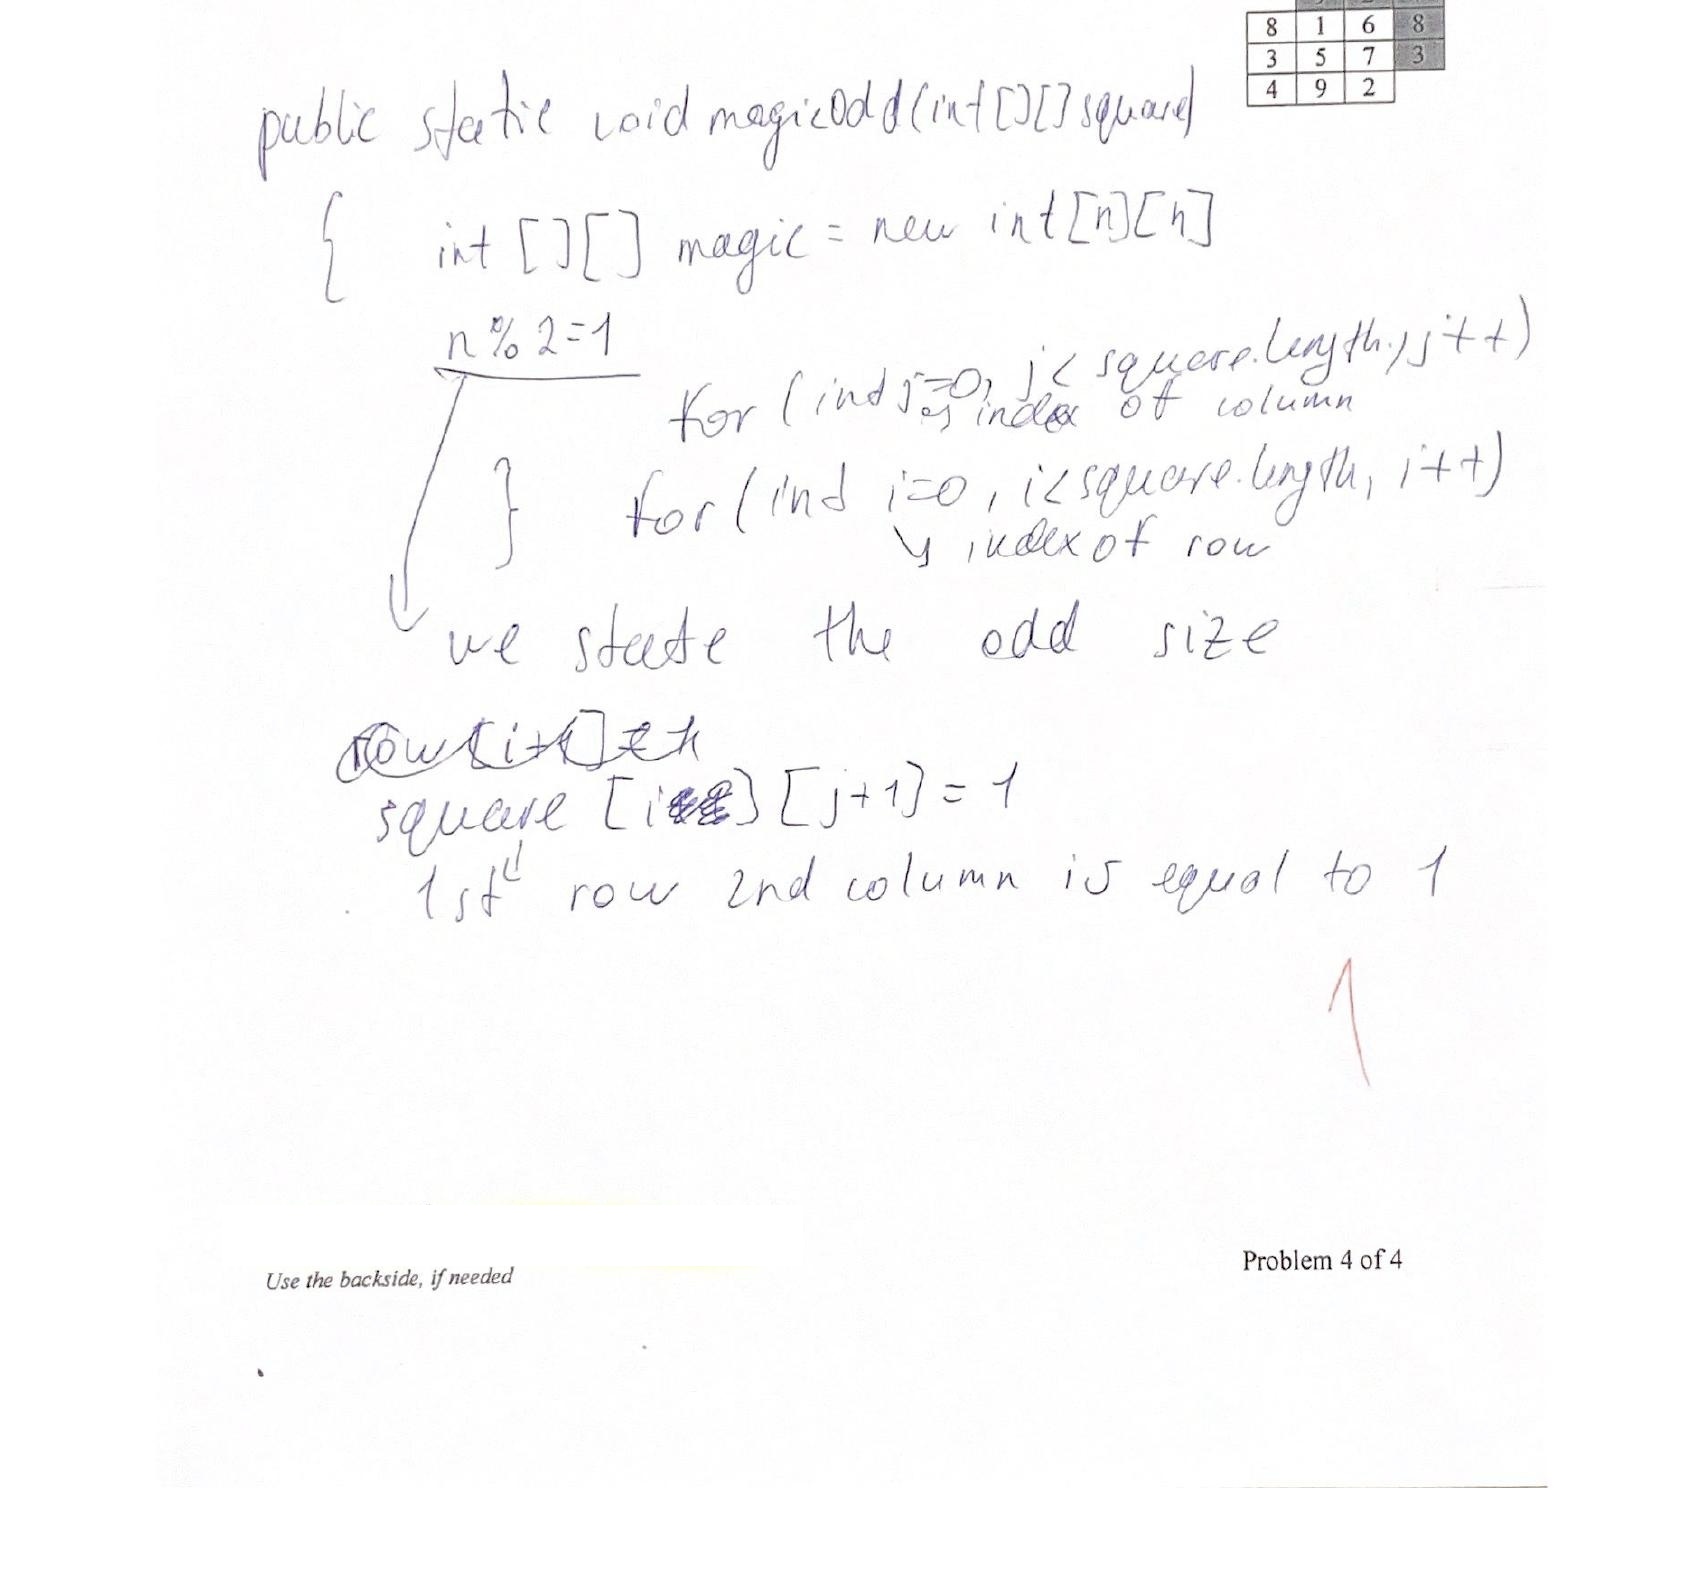 8 1 6 8
3 5 7 3
4 9 2
public static void magicOdd(int[][] square)
{ int [][] magic = new int[n][n]
n % 2=1
for (ind j=0, j< square.length, j++)
index of column
} for (ind i=0, i<square.length, i++)
index of row
we state the odd size
square [i] [j+1] = 1
1st row 2nd column is equal to 1
1
Use the backside, if needed
Problem 4 of 4